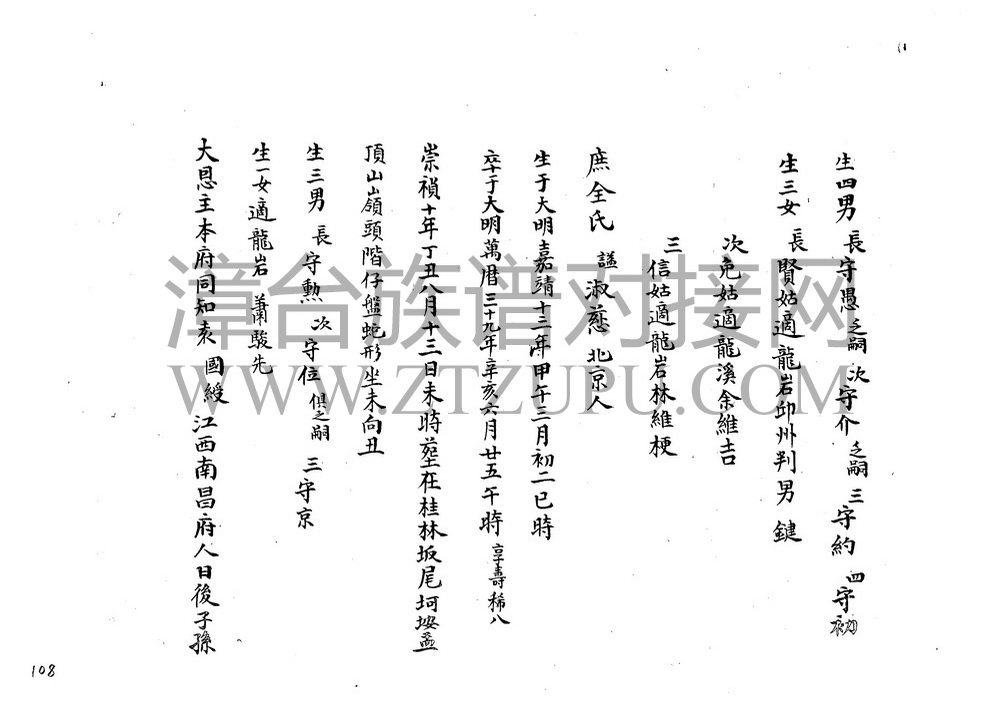 生四男 長守愚 乏嗣 次守介 乏嗣 三守約 四守初
生三女 長賢姑適龍岩邱州判男 鍵
次免姑適龍溪余維吉
三信姑適龍岩林維梗
庶全氏 謚淑慈 北京人
生于大明嘉靖十三年甲午三月初二巳時
卒于大明萬曆三十九年辛亥六月廿五午時 享壽稀八
崇禎十年丁丑八月十三日未時葬在桂林坂尾坷垵孟
頂山嶺頭階仔盤蛇形坐未向丑
生三男 長守勲 次守位 俱乏嗣 三守京
生一女適龍岩 蕭駿先
大恩主本府同知袁 國綬 江西南昌府人日後子孫
108
漳台族谱对接网
WWW.ZTZUPU.COM